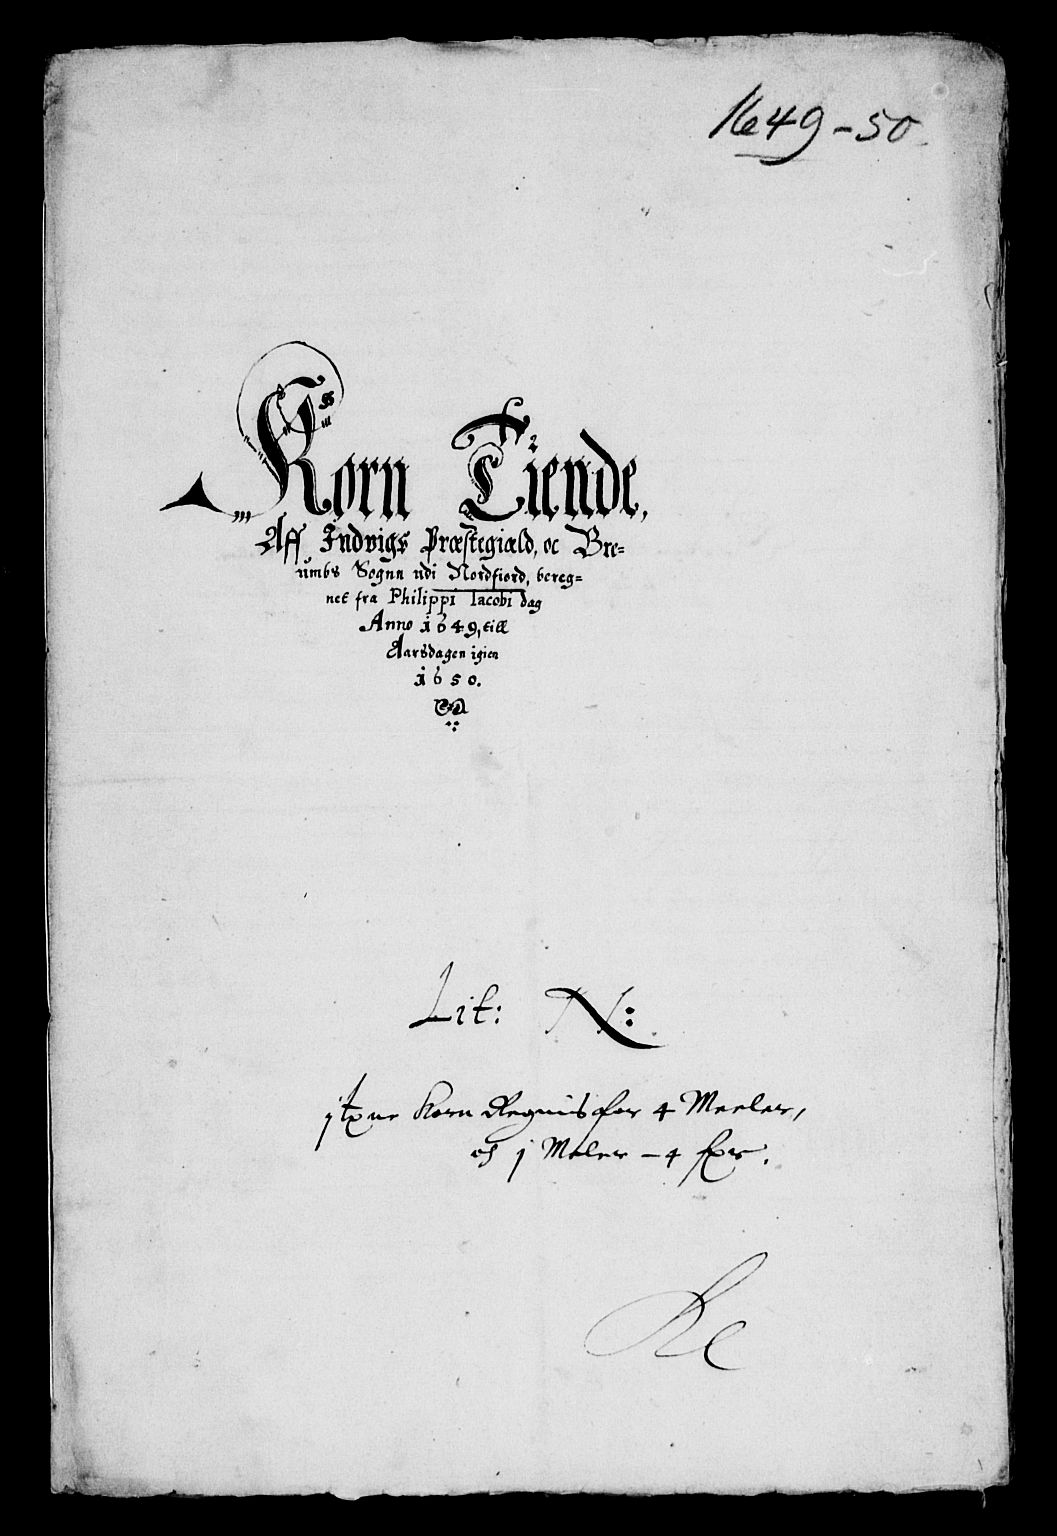 1649-50
Korn Tiende,
Aff Indvigs Præstegiæld, oc Bre=
umbs Sognn udi Nordfiord, bereg=
net fra Philippi Iacobi dag
Anno 1649, till
Aarsdagen igien
1650.
Lit: N:
j tne Korn Regnis for 4 Meeler,
och j Meler - 4